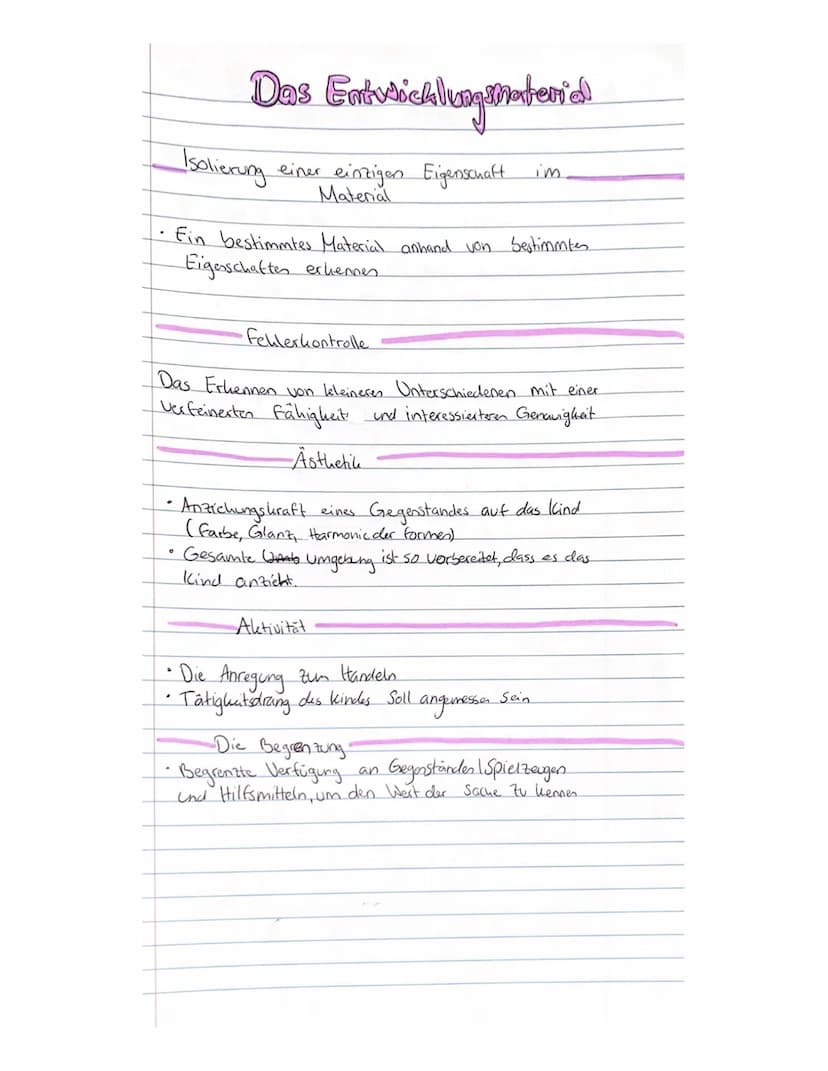 Das Entwicklungsmaterial
Isolierung einer einzigen Eigenschaft im
Material
· Ein bestimmtes Material anhand von bestimmten
Eigenschaften erkennen
Fehlerkontrolle
Das Erkennen von kleineren Unterschiedenen mit einer
verfeinerten Fähigkeit und interessierteren Genauigkeit
Ästhetik
· Anziehungskraft eines Gegenstandes auf das Kind
(Farbe, Glanz, Harmonie der Formen)
· Gesamte Umgebung ist so vorbereitet, dass es das
Kind anzieht.
Aktivität
· Die Anregung zum Handeln
· Tätigkeitsdrang des Kindes Soll angemessen sein
Die Begrenzung
· Begrenzte Verfügung an Gegenständen | Spielzeugen
und Hilfsmitteln, um den Wert der Sache zu kennen